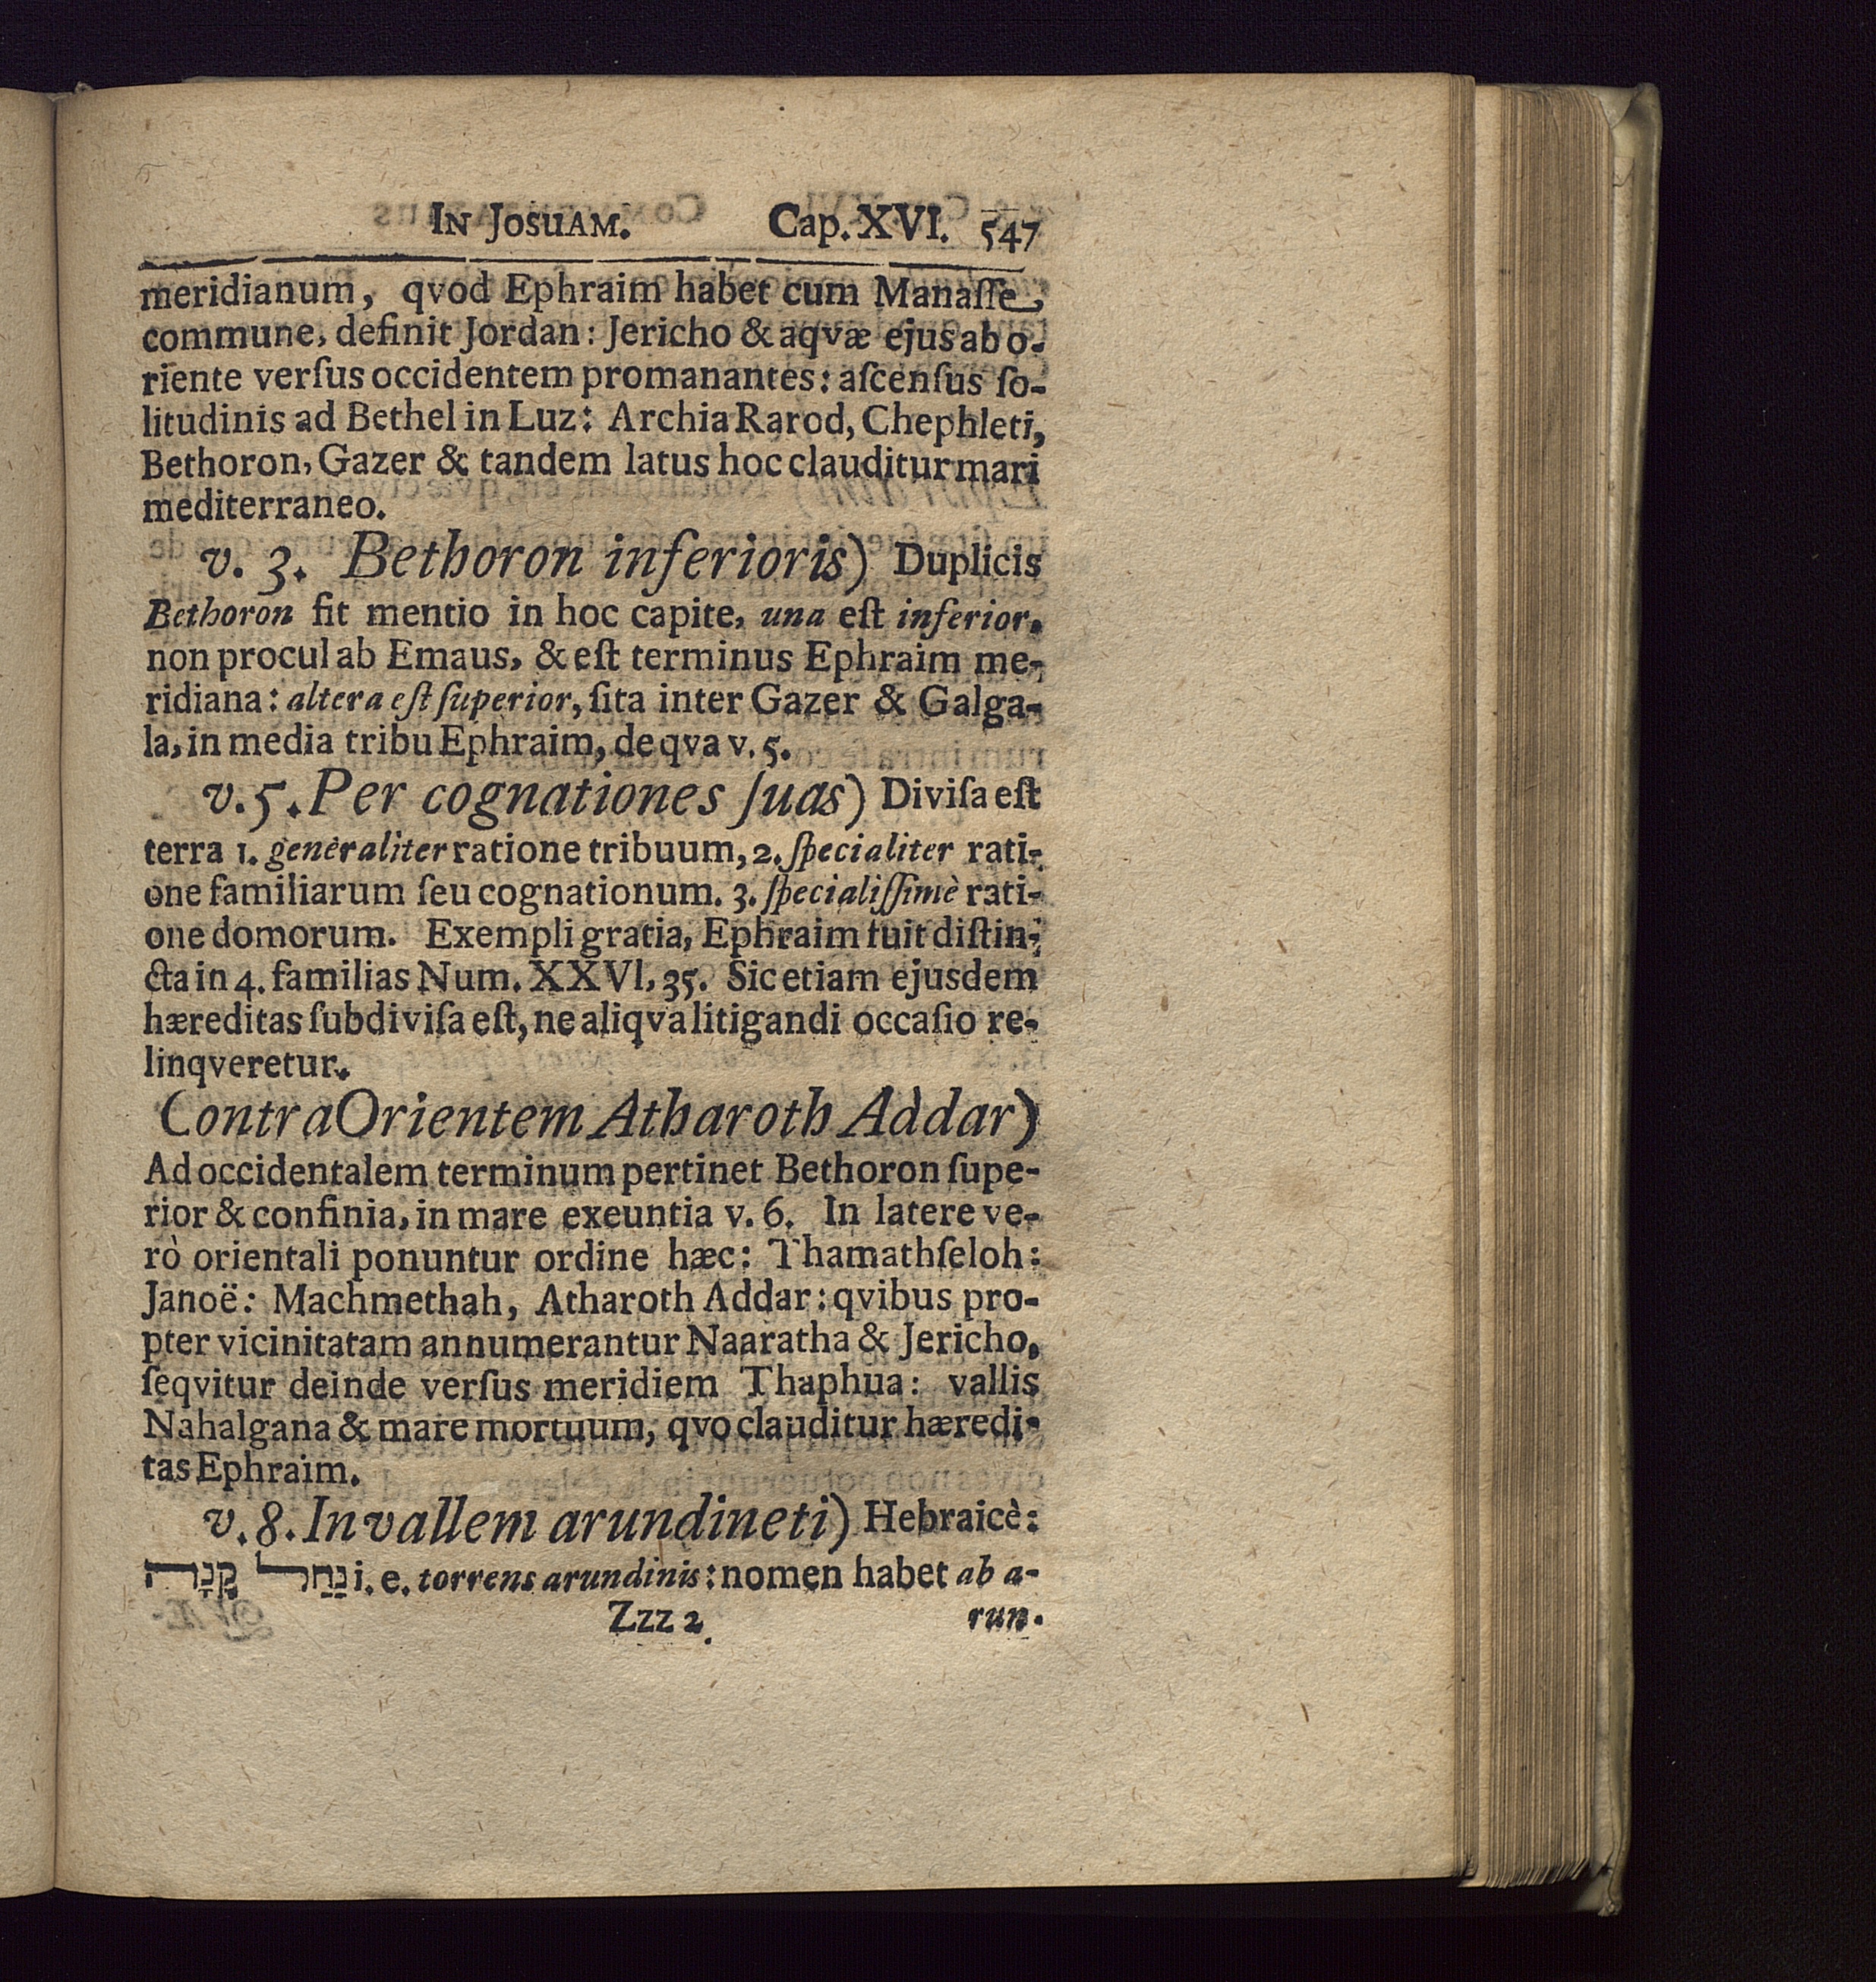 IN JOSUAM. Cap. XVI. 547
meridianum, qvod Ephraim habet cum Manaſſe,
commune, definit Jordan: Jericho & aqvæ ejus ab o-
riente verſus occidentem promanantes: aſcenſus ſo-
litudinis ad Bethel in Luz: Archia Rarod, Chephleti,
Bethoron, Gazer & tandem latus hoc clauditur mari
mediterraneo.
v. 3. Bethoron inferioris) Duplicis
Bethoron fit mentio in hoc capite, una eſt inferior,
non procul ab Emaus, & eſt terminus Ephraim me-
ridiana: altera eſt ſuperior, ſita inter Gazer & Galga-
la, in media tribu Ephraim, de qva v. 5.
v. 5. Per cognationes ſuas) Diviſa eſt
terra 1. generaliter ratione tribuum, 2. ſpecialiter rati-
one familiarum ſeu cognationum. 3. ſpecialiſſimè rati-
one domorum. Exempli gratia, Ephraim fuit diſtin-
cta in 4. familias Num. XXVI, 35. Sic etiam ejusdem
hæreditas ſubdiviſa eſt, ne aliqva litigandi occaſio re-
linqveretur.
Contra Orientem Atharoth Addar)
Ad occidentalem terminum pertinet Bethoron ſupe-
rior & confinia, in mare exeuntia v. 6. In latere ve-
rò orientali ponuntur ordine hæc: Thamathſeloh:
Janoë: Machmethah, Atharoth Addar: qvibus pro-
pter vicinitatam annumerantur Naaratha & Jericho,
ſeqvitur deinde verſus meridiem Thaphua: vallis
Nahalgana & mare mortuum, qvo clauditur hæredi-
tas Ephraim.
v. 8. In vallem arundineti) Hebraicè:
נַחַל קָנָה i. e. torrens arundinis: nomen habet ab a-
Zzz 2 run-